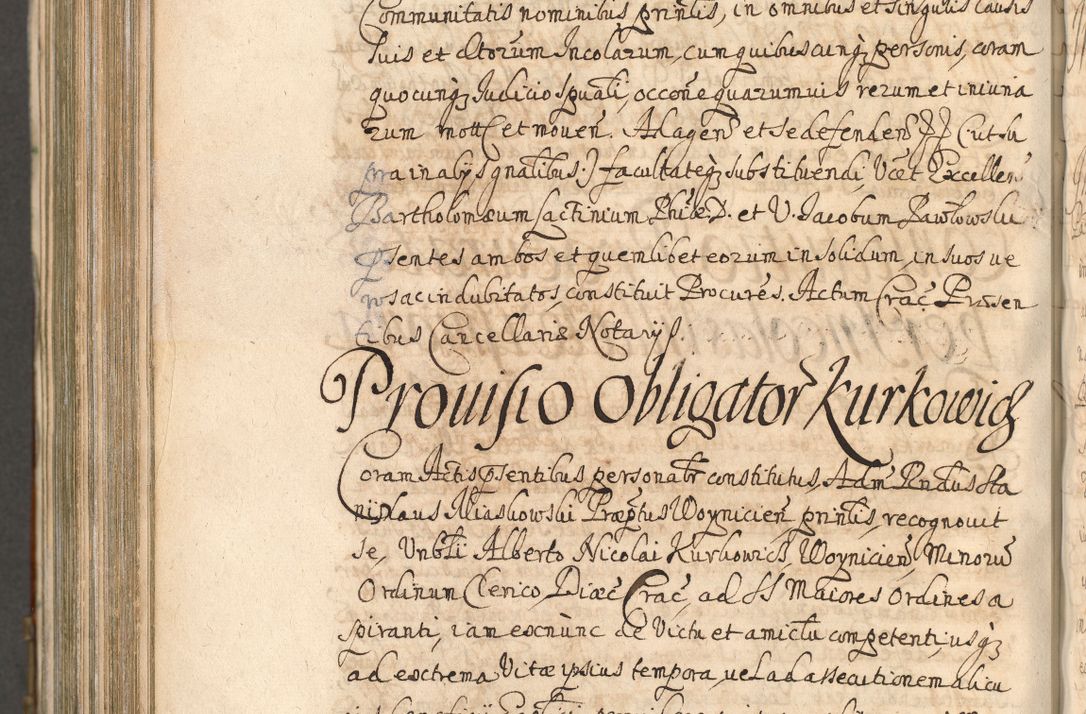 Communitatis nominibus prinłis, in omnibus et singulis causis
suis et aliorũm Incolarum, cum quibuscunq; personis, coram
quocunq; Iudicio spuali, occõne quarumuis rerum et iniuria
rum mott et mouen̄. Ad agen̄ et se defenden̄ (: ut su
pra in alijs gnalibus:) facultateq; substituendi, Vcet Excellen̄
Bartholomæum Sactinium Philæ D. et V. Iacobum Pawłowski
p̄sentes ambos et quemlibet eorum in solidum, in suos ue
ros ac indubitatos, constituit Procures. Actum Crac̄ Præsen
tibus Cancellariæ Notarijs.
Prouisio Obligator̄ Kurkowicz
Coram Actis p̄sentibus personalr̄ constitutus, Adm̄ Rndus Sta
nislaus Miaskowski Præp̄tus Woynicien̄ prinłis, recognouit
se, Vnbłi Alberto Nicolai Kurkowicz, Woynicien̄, Minorũ
Ordinum Clerico, Diæc̄ Crac̄, ad SS Maiores Ordines a
spiranti, iam exnũnc de Victu et amictu competenti, usq;
ad extrema Vitæ ipsius tempora, uel ad assecutionem alicu